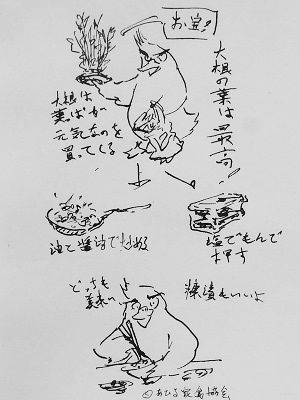 お宝!
大根の葉は最高!
大根は
葉っぱが
元気なのを
買ってくる
油で醤油で炒め
塩でもんで
押す
どっちも
美味いよ
糠漬もいいよ